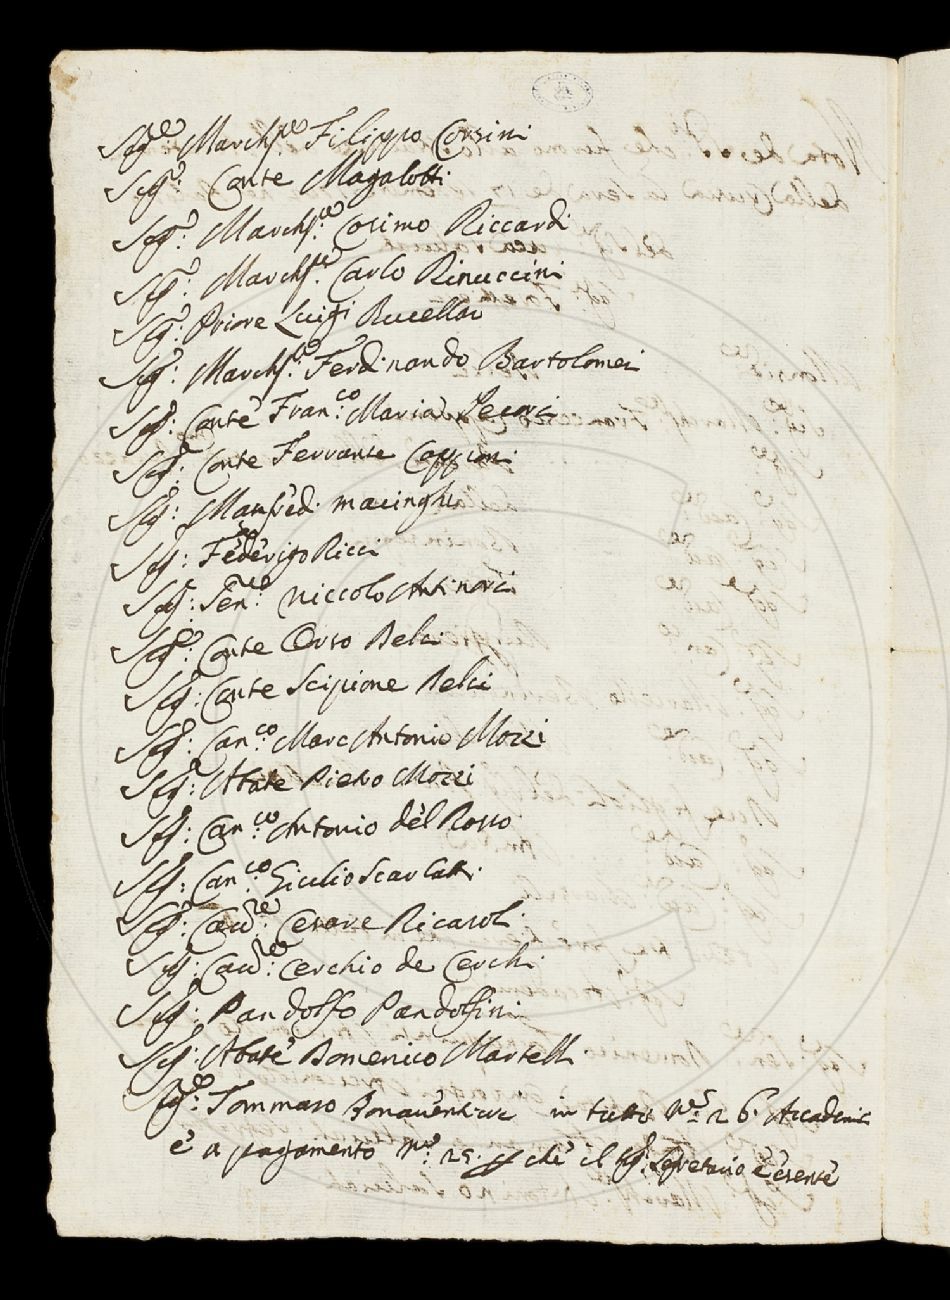 Sigre: Marchse Filippo Corsini
Sigr: Conte Magalotti
Sigr: Marchse: Cosimo Riccardi
Sigr: Marchse: Carlo Rinuccini
Sigr: Priore Luigi Rucellai
Sigr: Marchse: Ferdinando Bartolomei
Sigr: Conte Franco: Maria Pecori
Sigr: Conte Ferrante Capponi
Sigr: Manfredi macinghi
Sigr: Federigo Ricci
Sigr: Senre: niccolo Antinori
Sigr: Conte Orso Delci
Sigr: Conte Scipione Delci
Sigr: Canco: Marc Antonio Mozzi
Sigr: Abate Piero Mozzi
Sigr: Canco: Antonio del Rosso
Sigr: Canco: Giulio Scarlatti
Sigr: Cavre: Cesare Ricasoli
Sigr: Cavre: Cerchio de Cerchi
Sigr: Pandolfo Pandolfini
Sigr: Abate Domenico Martelli
Sigr: Tommaso Bonaventuri in tutto No: 26. Accademici
e a pagamento No: 25. che il Sigr: Segretario è esente